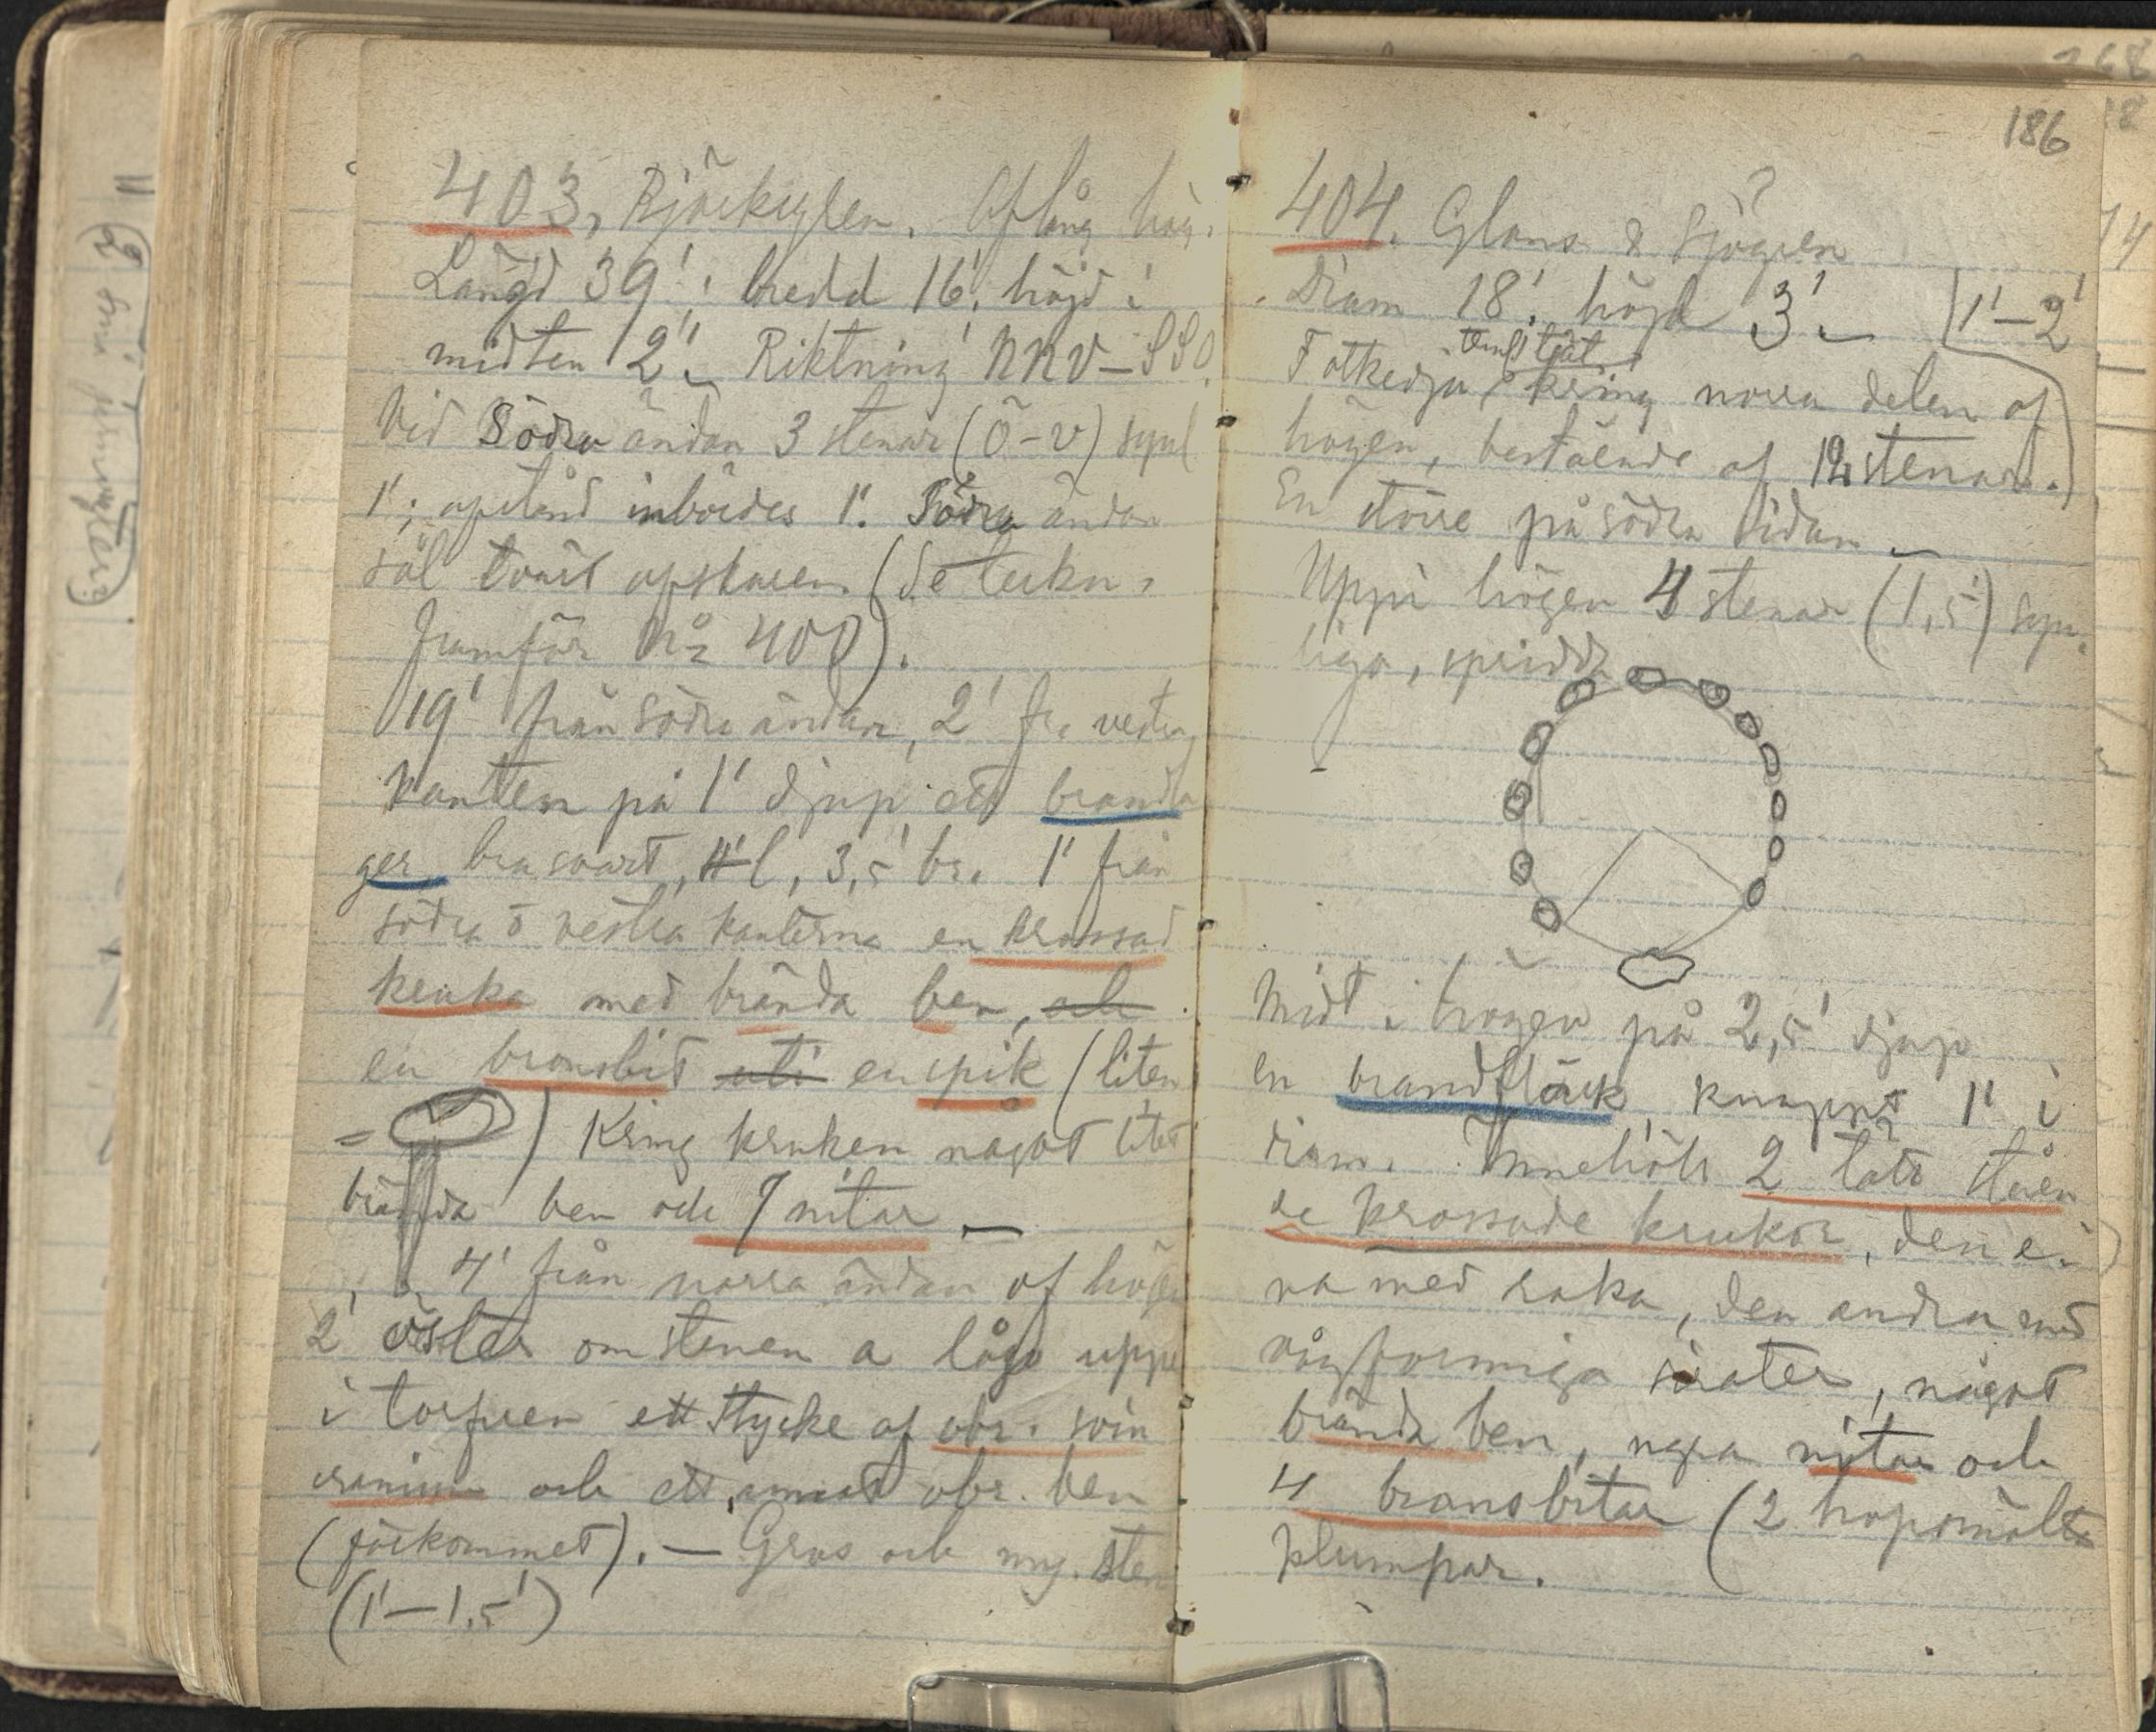 403, Björkgren. Aflång hög.
Längd 39'; bredd 16', höjd i
midten 2'. Riktning NNV–SSO.
Vid Södra ändan 3 stenar (Ö–V) synl
1'; afstånd inbördes 1'. Södra ändan
tvärt afskuren (Se teckn.
framför No 400).
19' från södra ändan, 2' fr. vestra
kanten på 1' djup ett brandla
ger, bra svart, 4' l, 3,5' br. 1' från
södra o vestra kanterna en krossad
kruka med brända ben, och
en bronsbit uti en spik (liten
= ) Kring krukan något litet
brända ben och 7 nitar –
4' från norra ändan af högen
2' öster om stenen a lågo uppe
i torfven ett stycke af obr. svin
cranium och ett annat obr. ben
(förkommet). – Grus och myc. sten
(1'–1,5')
186
404. Glans & Sjögren
Diam 18', höjd 3'. 1'–2'
Fotkedja, kring norra delen af
högen, bestående af 12 stenar.
En större på södra sidan –
Uppi högen 4 stenar (1,5') syn-
liga, spridda
Midt i högen på 2,5' djup
en brandfläck, knappt 1' i
diam. Innehöll 2 tätt ståen
de krossade krukor, den e-
na med raka, den andra med
vågformiga sirater, något
brända ben, några nitar och
4 bronsbitar (2 hopsmälta
klumpar.